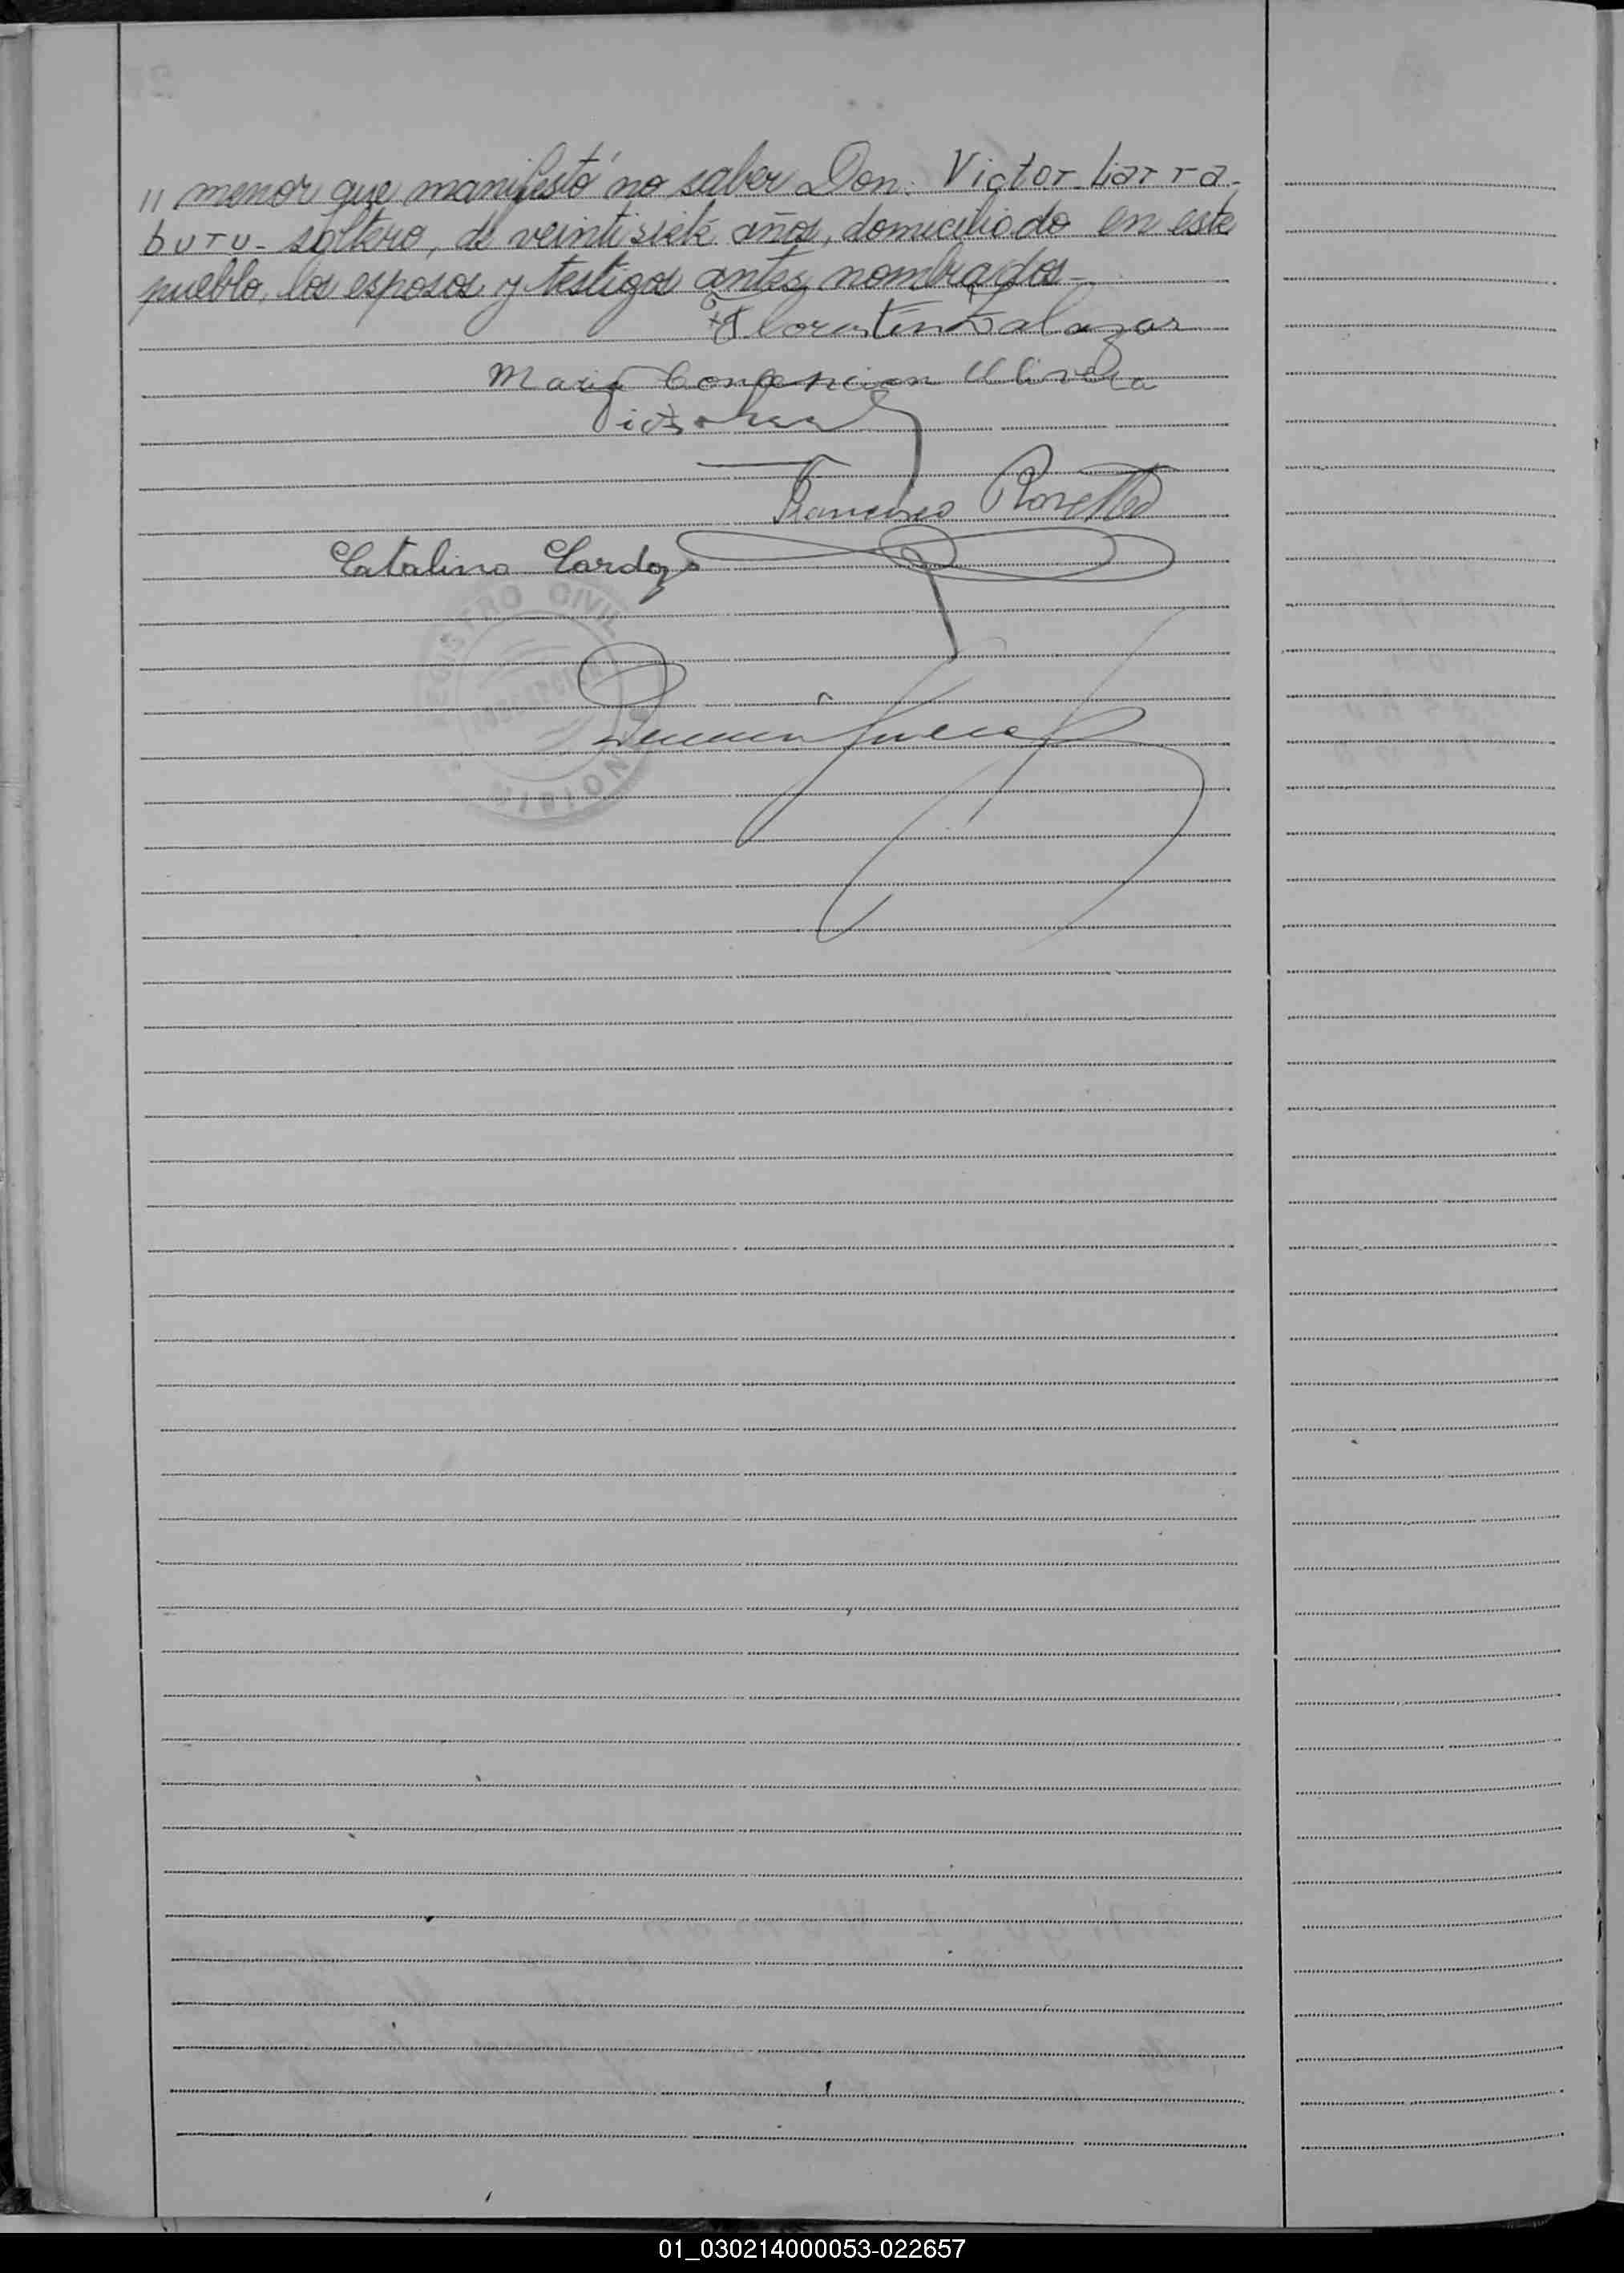 " menor que manifestó no saber Don. Victor Liarra-
buru- soltero, de veintisiete años, domiciliado en este
pueblo, los esposos y testigos antes nombrados-
Florentin Salazar
Maria Concepcion Olivera
Francisco
Catalino Cardozo
REGISTRO CIVIL
01_030214000053-022657